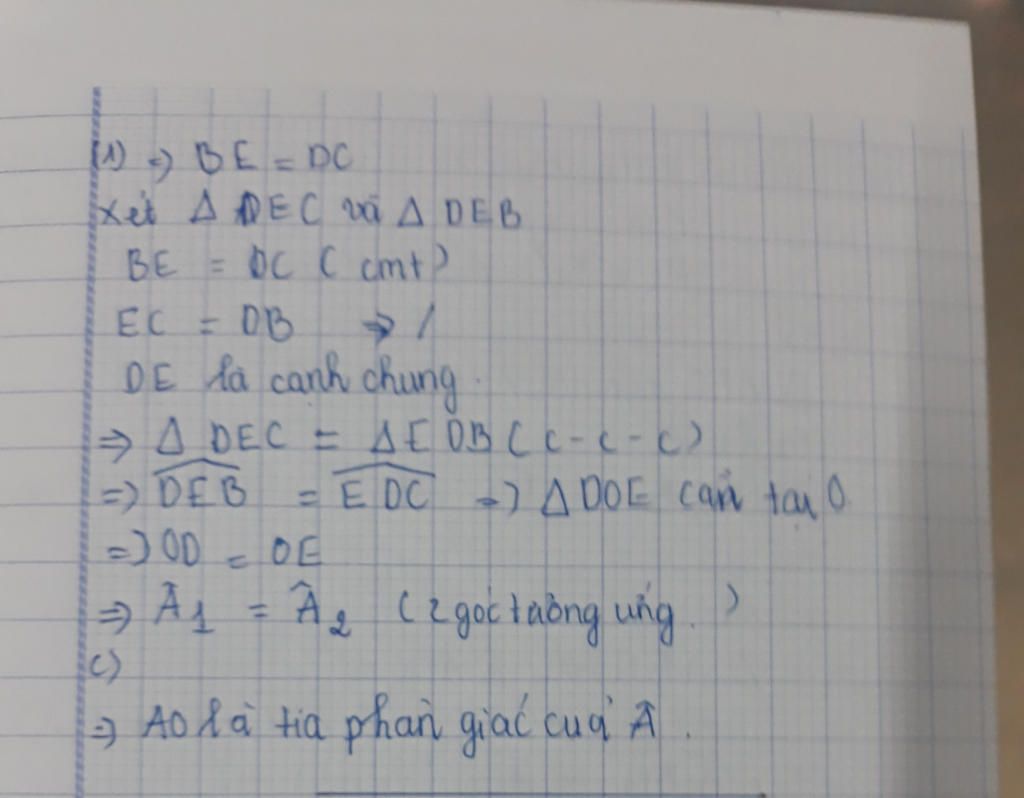 (1) => BE = DC
Xét Δ DEC và Δ DEB
BE = DC ( cmt )
EC = DB => /
DE là cạnh chung.
=> Δ DEC = ΔEDB ( c - c - c )
=> \widehat{DEB} = \widehat{EDC} => ΔDOE cân tại O
=> OD = OE
=> Â1 = Â2 ( 2 góc tương ứng. )
c)
=> AO là tia phân giác của Â.